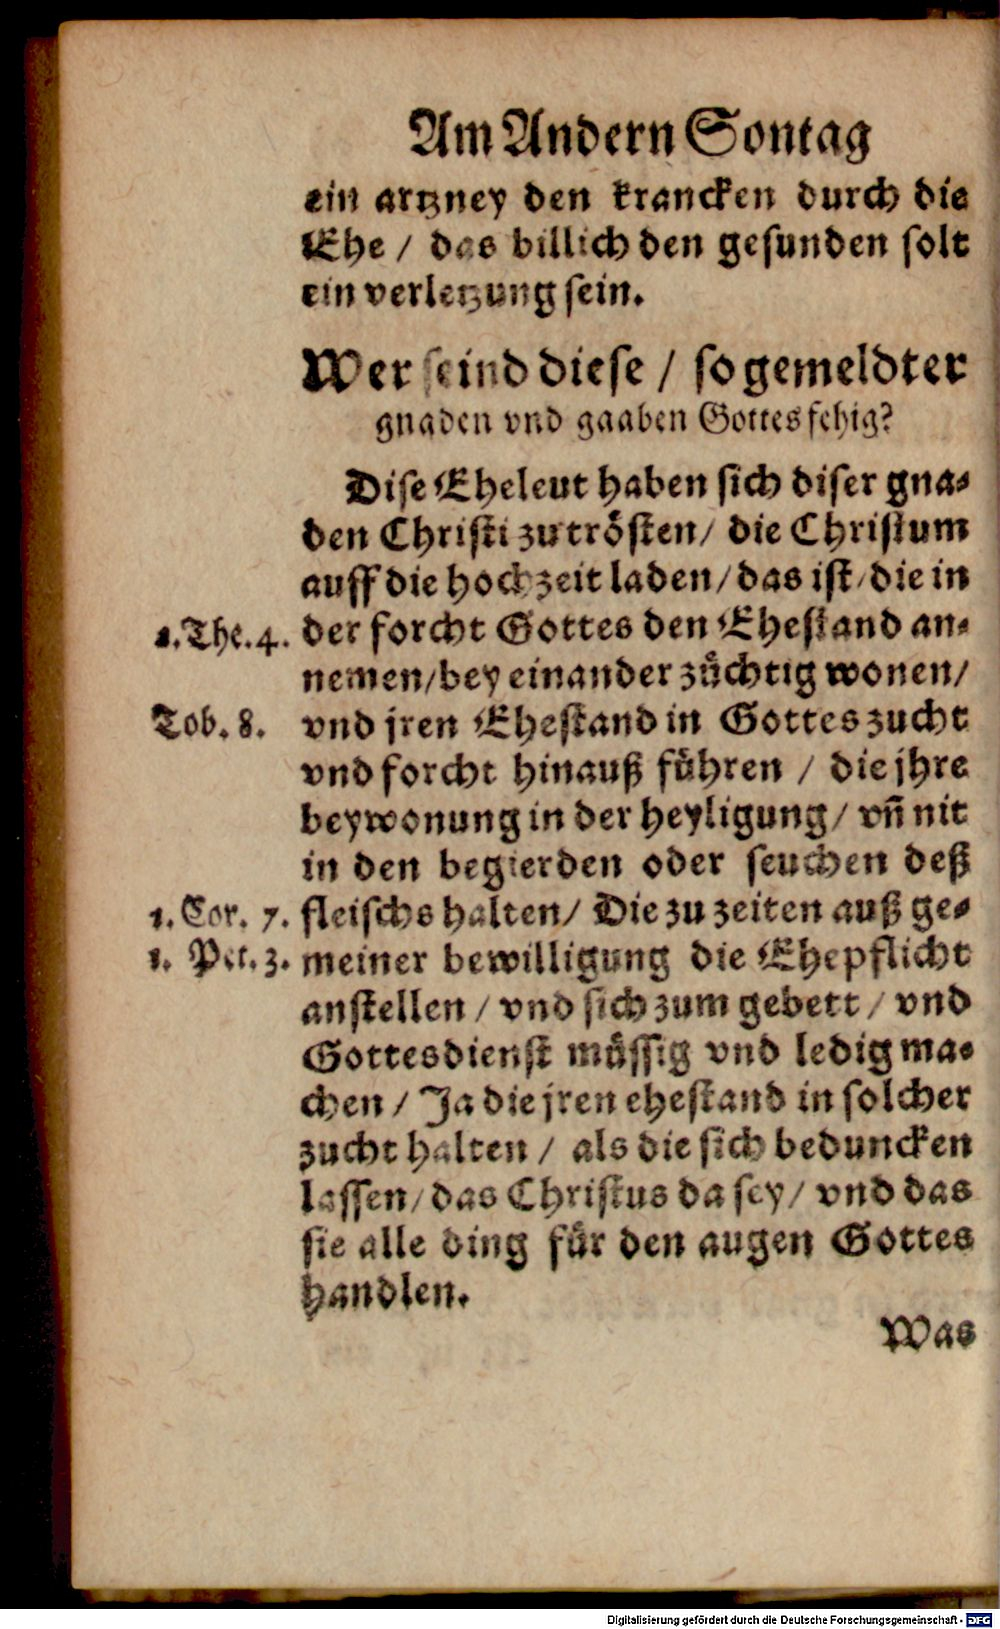 Am Andern Sontag
ein artzney den krancken durch die
Ehe / das billich den gesunden solt
ein verletzung sein.
Wer seind diese / so gemeldter
gnaden vnd gaaben Gottes fehig?
Dise Eheleut haben sich diser gna-
den Christi zu trösten / die Christum
auff die hochzeit laden / das ist / die in
1. The. 4. der forcht Gottes den Ehestand an-
nemen / bey einander züchtig wonen /
Tob. 8. vnd jren Ehestand in Gottes zucht
vnd forcht hinauß führen / die jhre
beywonung in der heyligung / vñ nit
in den begierden oder seuchen deß
1. Cor. 7. fleischs halten / Die zu zeiten auß ge-
1. Pet. 3. meiner bewilligung die Ehepflicht
anstellen / vnd sich zum gebett / vnd
Gottesdienst müssig vnd ledig ma-
chen / Ja die jren ehestand in solcher
zucht halten / als die sich beduncken
lassen / das Christus da sey / vnd das
sie alle ding für den augen Gottes
handlen.
Was
Digitalisierung gefördert durch die Deutsche Forschungsgemeinschaft - DFG